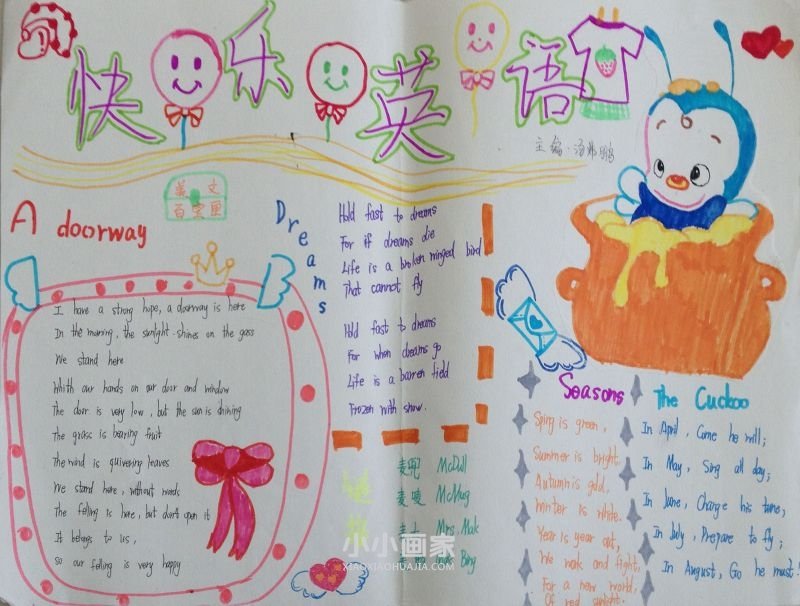 快乐英语
主编:汤弗鹏
英文
百宝匣
A doorway
I have a strong hope, a doorway is here
In the murning, the sunlght shines on the gass
We stand here
Whith our hands on our door and window
The door is very low, but the sun is shining
The grass is bearing fruit
The wind is quivering leaves
We stand here, without words
The felling is here, but don't open it
It belongs to us,
so our felling is very happy
Dreams
Hold fast to dreams
For if dreams die
Life is a broken winged bird
That cannot fly
Hold fast to dreams
For when dreams go
Life is a barren field
Frozen with snow.
麦兜 McDull
麦唛 McMug
麦太 Mrs Mak
Bing
Seasons
Spring is green,
Summer is bright.
Autumn is gold,
Winter is white.
Year is year out,
We work and fight,
For a new world,
Of red sunlight.
The Cuckoo
In April, Come he will;
In May, Sing all day;
In June, Change his tune;
In July, Prepare to fly;
In August, Go he must!
小小画家
XIAOXIAOHUAJIA.COM